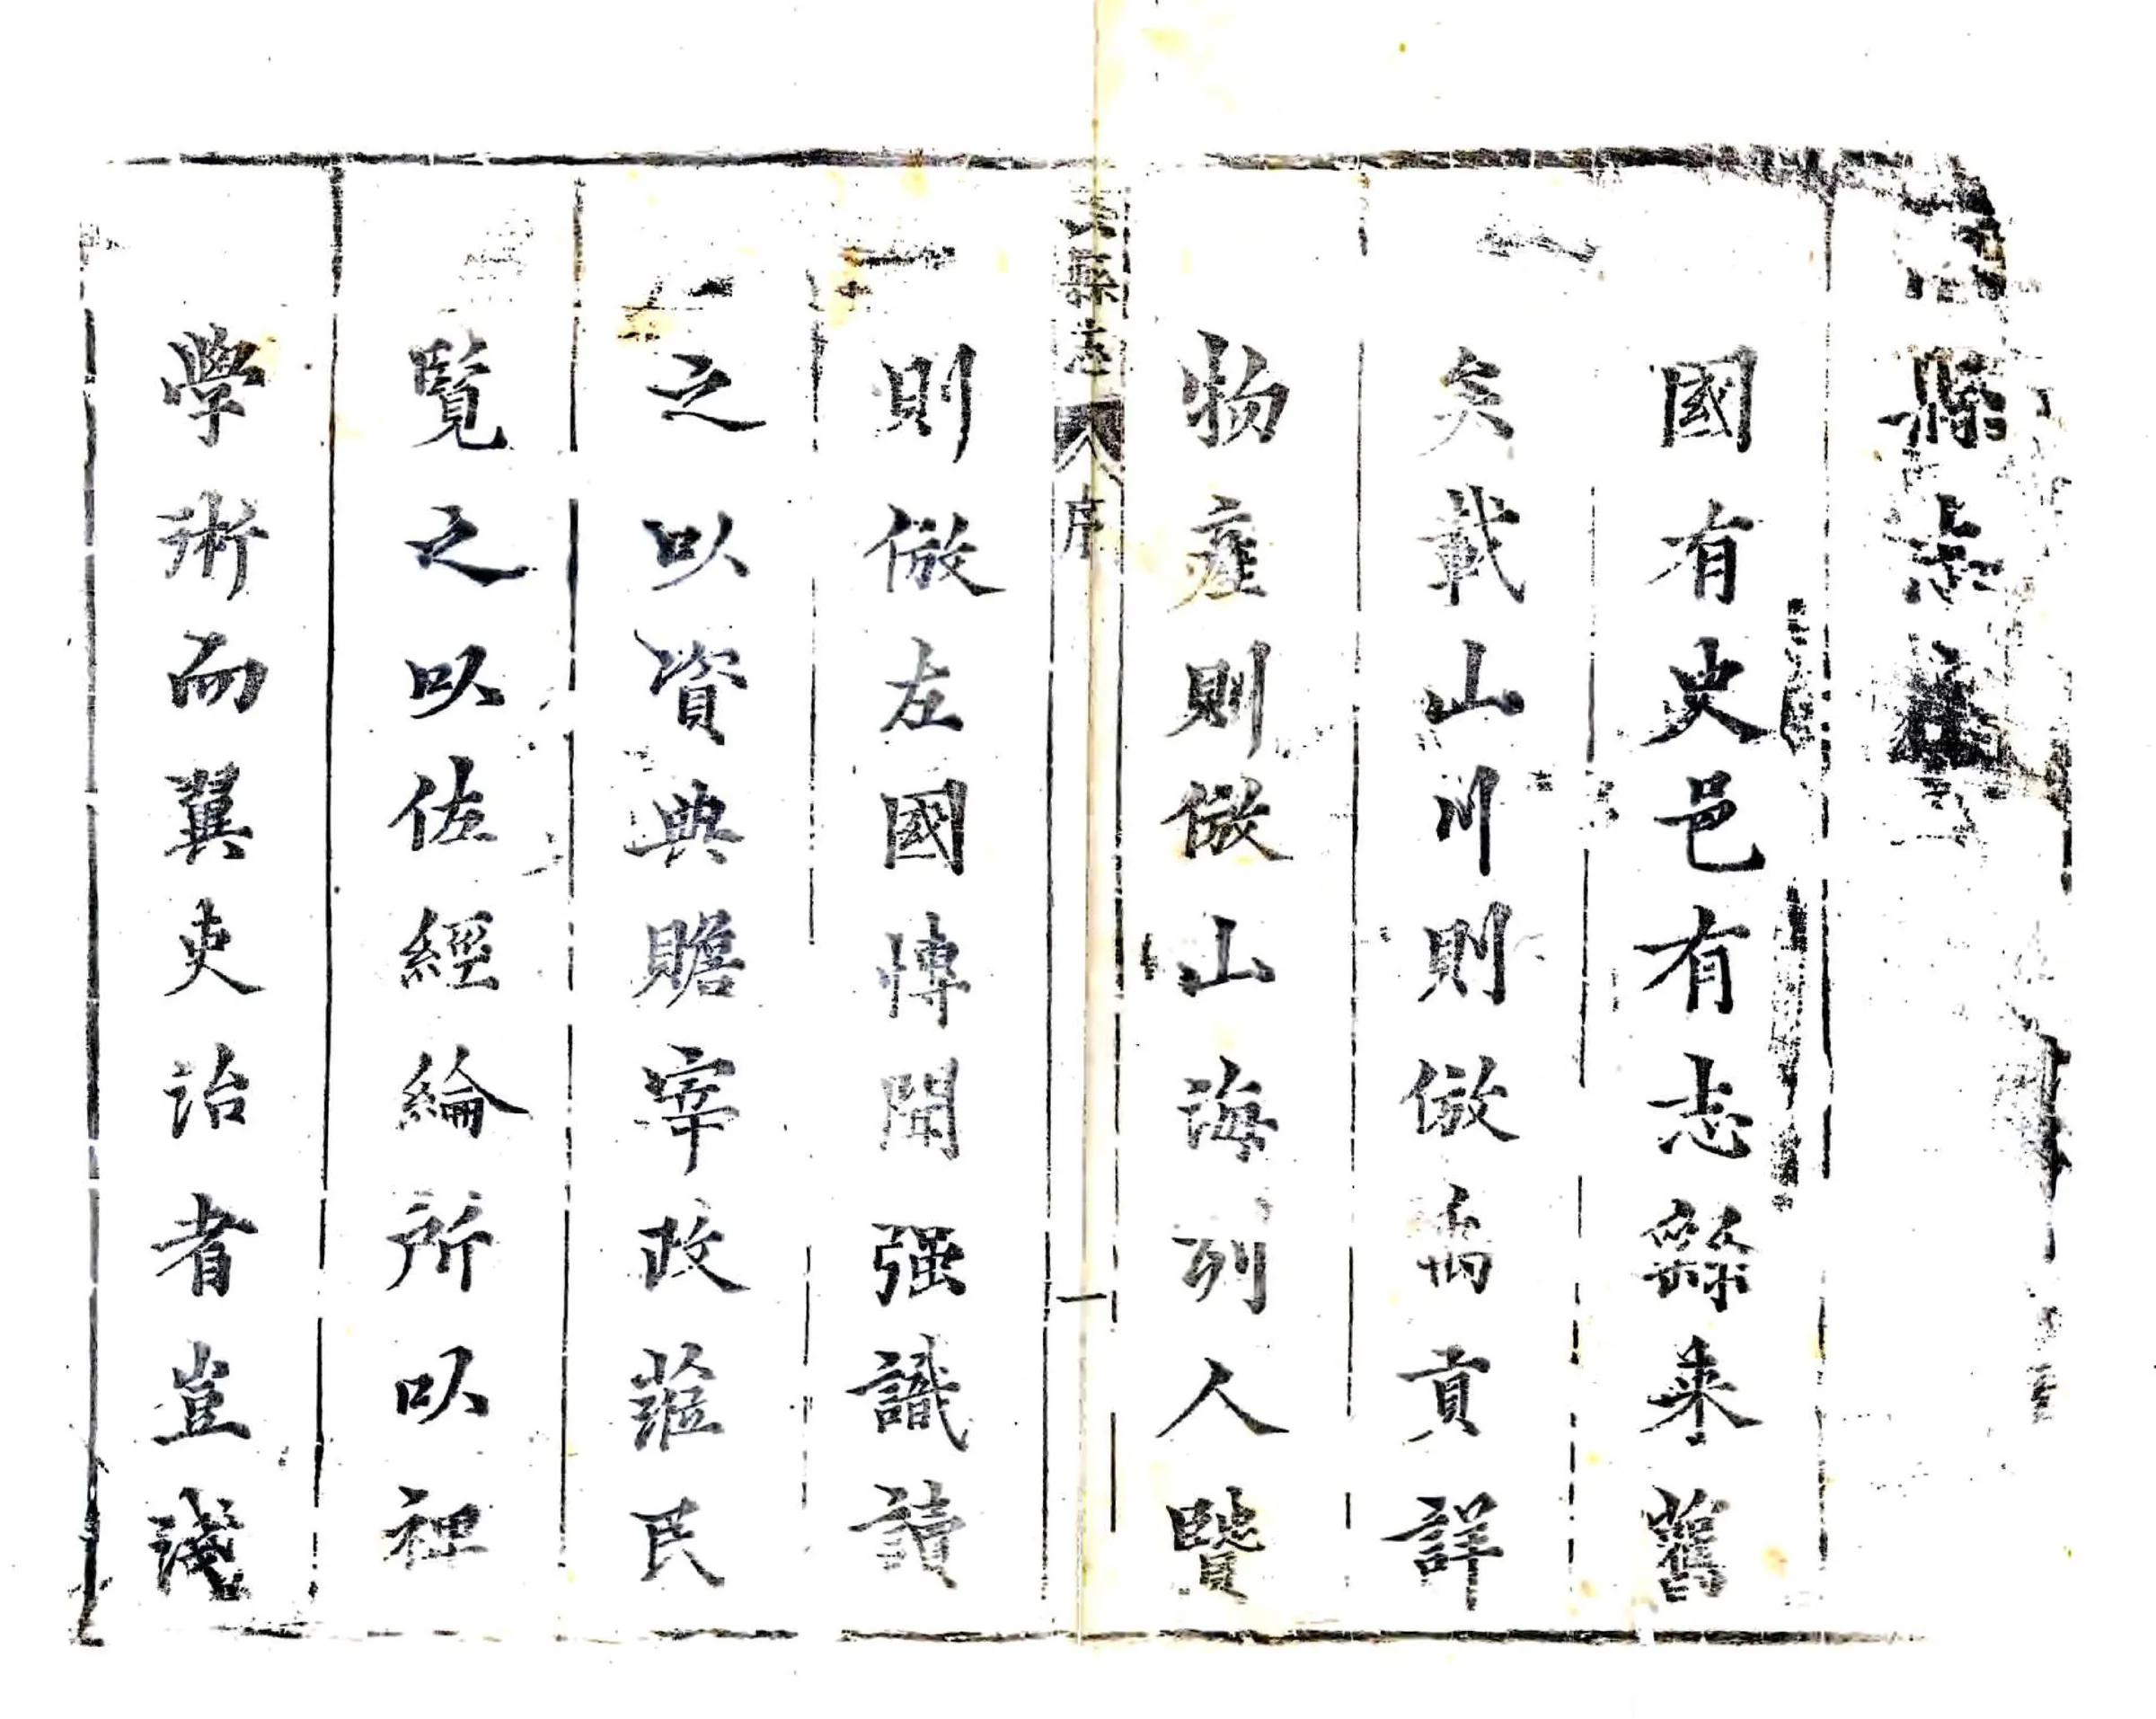 縣志序
國有史邑有志繇来舊
矣載山川則倣禹貢詳
物產則倣山海列人贒
則倣左國愽聞强識讀
之以資典贍宰政蒞民
覽之以佐經綸所以裨
學術而翼吏治者豈淺
縣志
序
一